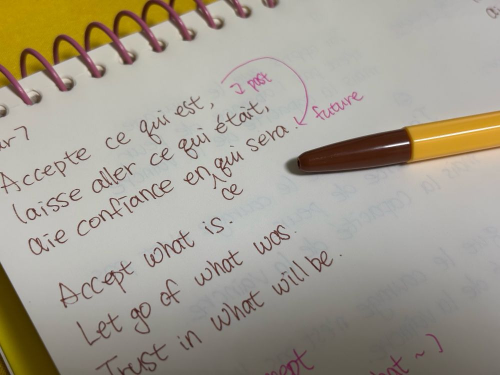 Accepte ce qui est,
past
laisse aller ce qui était,
future
aie confiance en ce qui sera.
Accept what is.
Let go of what was.
Trust in what will be.